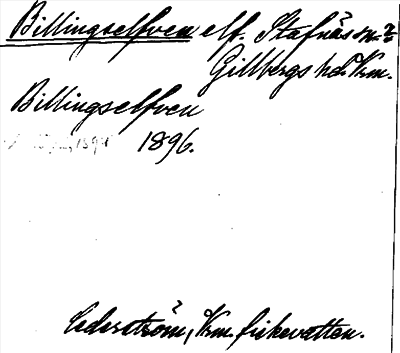 Billingselfven elf. Stafnäs sn. ?
Gillbergs hd. Vrm.
Billingselfven
1896.
Cederström, Vrm. fiskevatten.